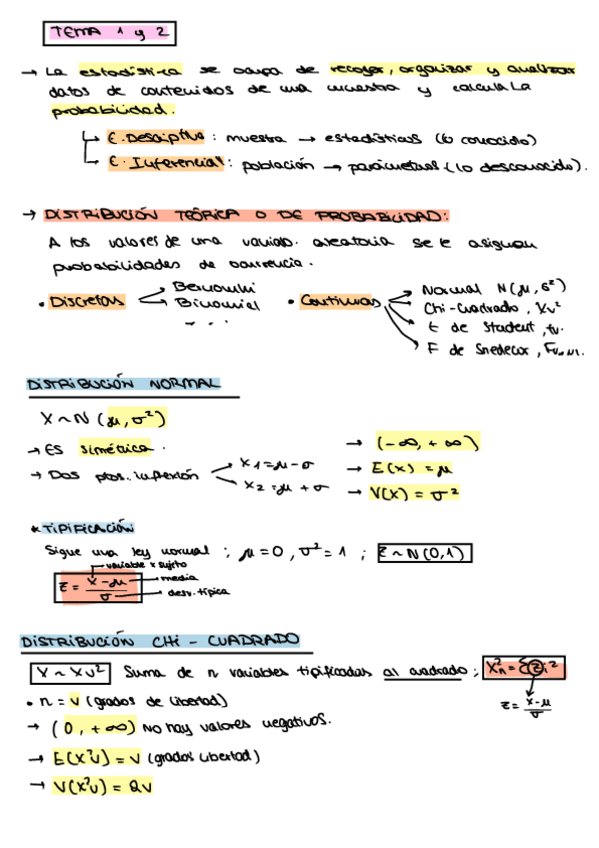 TEMA 1 y 2
→ La estadística se ocupa de recoger, organizar y analizar
datos de contenidos de una muestra y calcula la
probabilidad.
E. Descriptiva: muestra → estadísticos (lo conocido)
E. Inferencial: población → parámetros (lo desconocido).
→ DISTRIBUCIÓN TEÓRICA O DE PROBABILIDAD:
A los valores de una variab. aleatoria se le asignan
probabilidades de ocurrencia.
• Discretas
Bernoulli
Binomial
...
• Continuas
Normal N(μ, σ²)
Chi-cuadrado, Xv²
t de Student, tv.
F de Snedecor,
DISTRIBUCIÓN NORMAL
X ~ N (μ, σ²)
→ Es simétrica.
→ Dos ptos. inflexión
X1 = μ - σ
X2 = μ + σ
→ (-∞, +∞)
→ E(x) = μ
→ V(x) = σ²
* TIPIFICACIÓN
Sigue una ley normal ; μ = 0, σ² = 1 ; Z ~ N(0,1)
Z = x - μ / σ
variable x sujeto
media
desv. típica
DISTRIBUCIÓN CHI - CUADRADO
X ~ Xv² Suma de n variables tipificadas al cuadrado ; X²n = ΣZi²
Z = x - μ / σ
• n = v (grados de libertad)
→ (0, +∞) No hay valores negativos.
→ E(X²v) = v (grados libertad)
→ V(X²v) = 2v